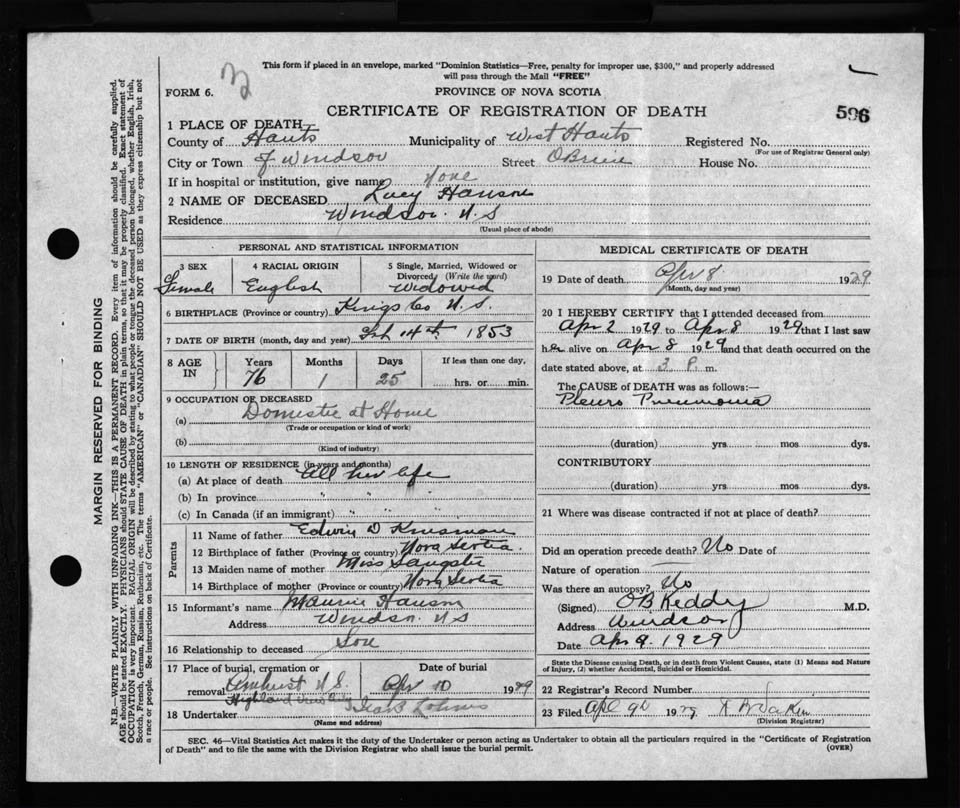 This form if placed in an envelope, marked "Dominion Statistics—Free, penalty for improper use, $300," and properly addressed
will pass through the Mail "FREE"
FORM 6.
PROVINCE OF NOVA SCOTIA
CERTIFICATE OF REGISTRATION OF DEATH
596
1 PLACE OF DEATH
County of Hants Municipality of West Hants Registered No.
(For use of Registrar General only)
City or Town of Windsor Street OBrien House No.
If in hospital or institution, give name None
2 NAME OF DECEASED Lucy Hanson
Residence Windsor. N.S
(Usual place of abode)
PERSONAL AND STATISTICAL INFORMATION
3 SEX 4 RACIAL ORIGIN 5 Single, Married, Widowed or
Divorced (Write the word)
Female English Widowed
6 BIRTHPLACE (Province or country) Kings Co N.S.
7 DATE OF BIRTH (month, day and year) 14th 1853
8 AGE IN Years Months Days If less than one day,
76 1 25 hrs. or min.
9 OCCUPATION OF DECEASED
(a) Domestic at Home
(Trade or occupation or kind of work)
(b)
(Kind of industry)
10 LENGTH OF RESIDENCE (in years and months)
(a) At place of death All her life
(b) In province " "
(c) In Canada (if an immigrant) " "
Parents
11 Name of father Edwin D Kinsman
12 Birthplace of father (Province or country) Nova Scotia
13 Maiden name of mother Miss Sangster
14 Birthplace of mother (Province or country) Nova Scotia
15 Informant's name Hanson
Address Windsor N S
16 Relationship to deceased Son
17 Place of burial, cremation or Date of burial
removal Amherst N.S. Apr 10 1929
Highland View
18 Undertaker
(Name and address)
MEDICAL CERTIFICATE OF DEATH
19 Date of death Apr 8 1929
(Month, day and year)
20 I HEREBY CERTIFY that I attended deceased from
Apr 2 1929 to Apr 8 1929 that I last saw
her alive on Apr 8 1929 and that death occurred on the
date stated above, at 3 P. m.
The CAUSE OF DEATH was as follows:—
Pleuro Pneumonia
(duration) yrs mos dys.
CONTRIBUTORY
(duration) yrs mos dys.
21 Where was disease contracted if not at place of death?
Did an operation precede death? No Date of
Nature of operation —
Was there an autopsy? No
(Signed) O B Keddy M.D.
Address Windsor
Date Apr 9. 1929
State the Disease causing Death, or in death from Violent Causes, state (1) Means and Nature
of Injury, (2) whether Accidental, Suicidal or Homicidal.
22 Registrar's Record Number
23 Filed Apl 9th 1929
(Division Registrar)
SEC. 46—Vital Statistics Act makes it the duty of the Undertaker or person acting as Undertaker to obtain all the particulars required in the "Certificate of Registration
of Death" and to file the same with the Division Registrar who shall issue the burial permit.
(OVER)
MARGIN RESERVED FOR BINDING
N.B.—WRITE PLAINLY WITH UNFADING INK—THIS IS A PERMANENT RECORD. Every item of information should be carefully supplied.
AGE should be stated EXACTLY. PHYSICIANS should STATE CAUSE OF DEATH in plain terms, so that it may be properly classified. Exact statement of
OCCUPATION is very important. RACIAL ORIGIN will be described by stating to what people or tongue the deceased person belonged, whether English, Irish,
Scotch, French, German, Russian, Ruthenian, etc. The terms "AMERICAN" or "CANADIAN" SHOULD NOT BE USED as they express citizenship but not
a race or people. See instructions on back of Certificate.